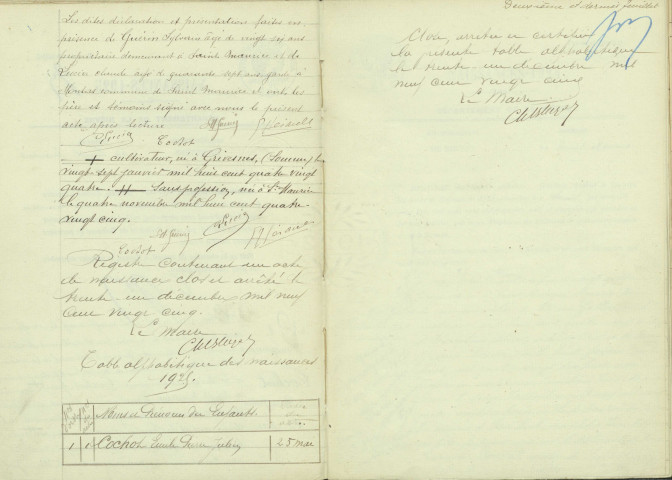 Les dites déclaration et présentation faites en
présence de Guérin Sylvain âgé de vingt six ans
propriétaire demeurant à Saint Maurice et de
claude âgé de quarante sept ans garde à
commune de Saint Maurice et ont les
père et témoins signé avec nous le présent
acte après lecture
Cochot
+ cultivateur, né à Grivesnes, (Somme) le
vingt-sept janvier mil huit cent quatre vingt
quatre. ++ Sans profession, née à St Maurice
le quatre novembre mil huit cent quatre-
vingt cinq.
Cochot
Registre contenant un acte
de naissance clos et arrêté le
trente-un décembre mil neuf
cent vingt cinq.
Le Maire
Table alphabétique des naissances
1925.
Noms et Prénoms des Enfants
1 1 Cochot Emile Pierre 25 mai
Deuxième et dernier feuillet
Clos, arrêté et certifié
la présente table alphabétique
le trente-un décembre mil
neuf cent vingt cinq
Le Maire